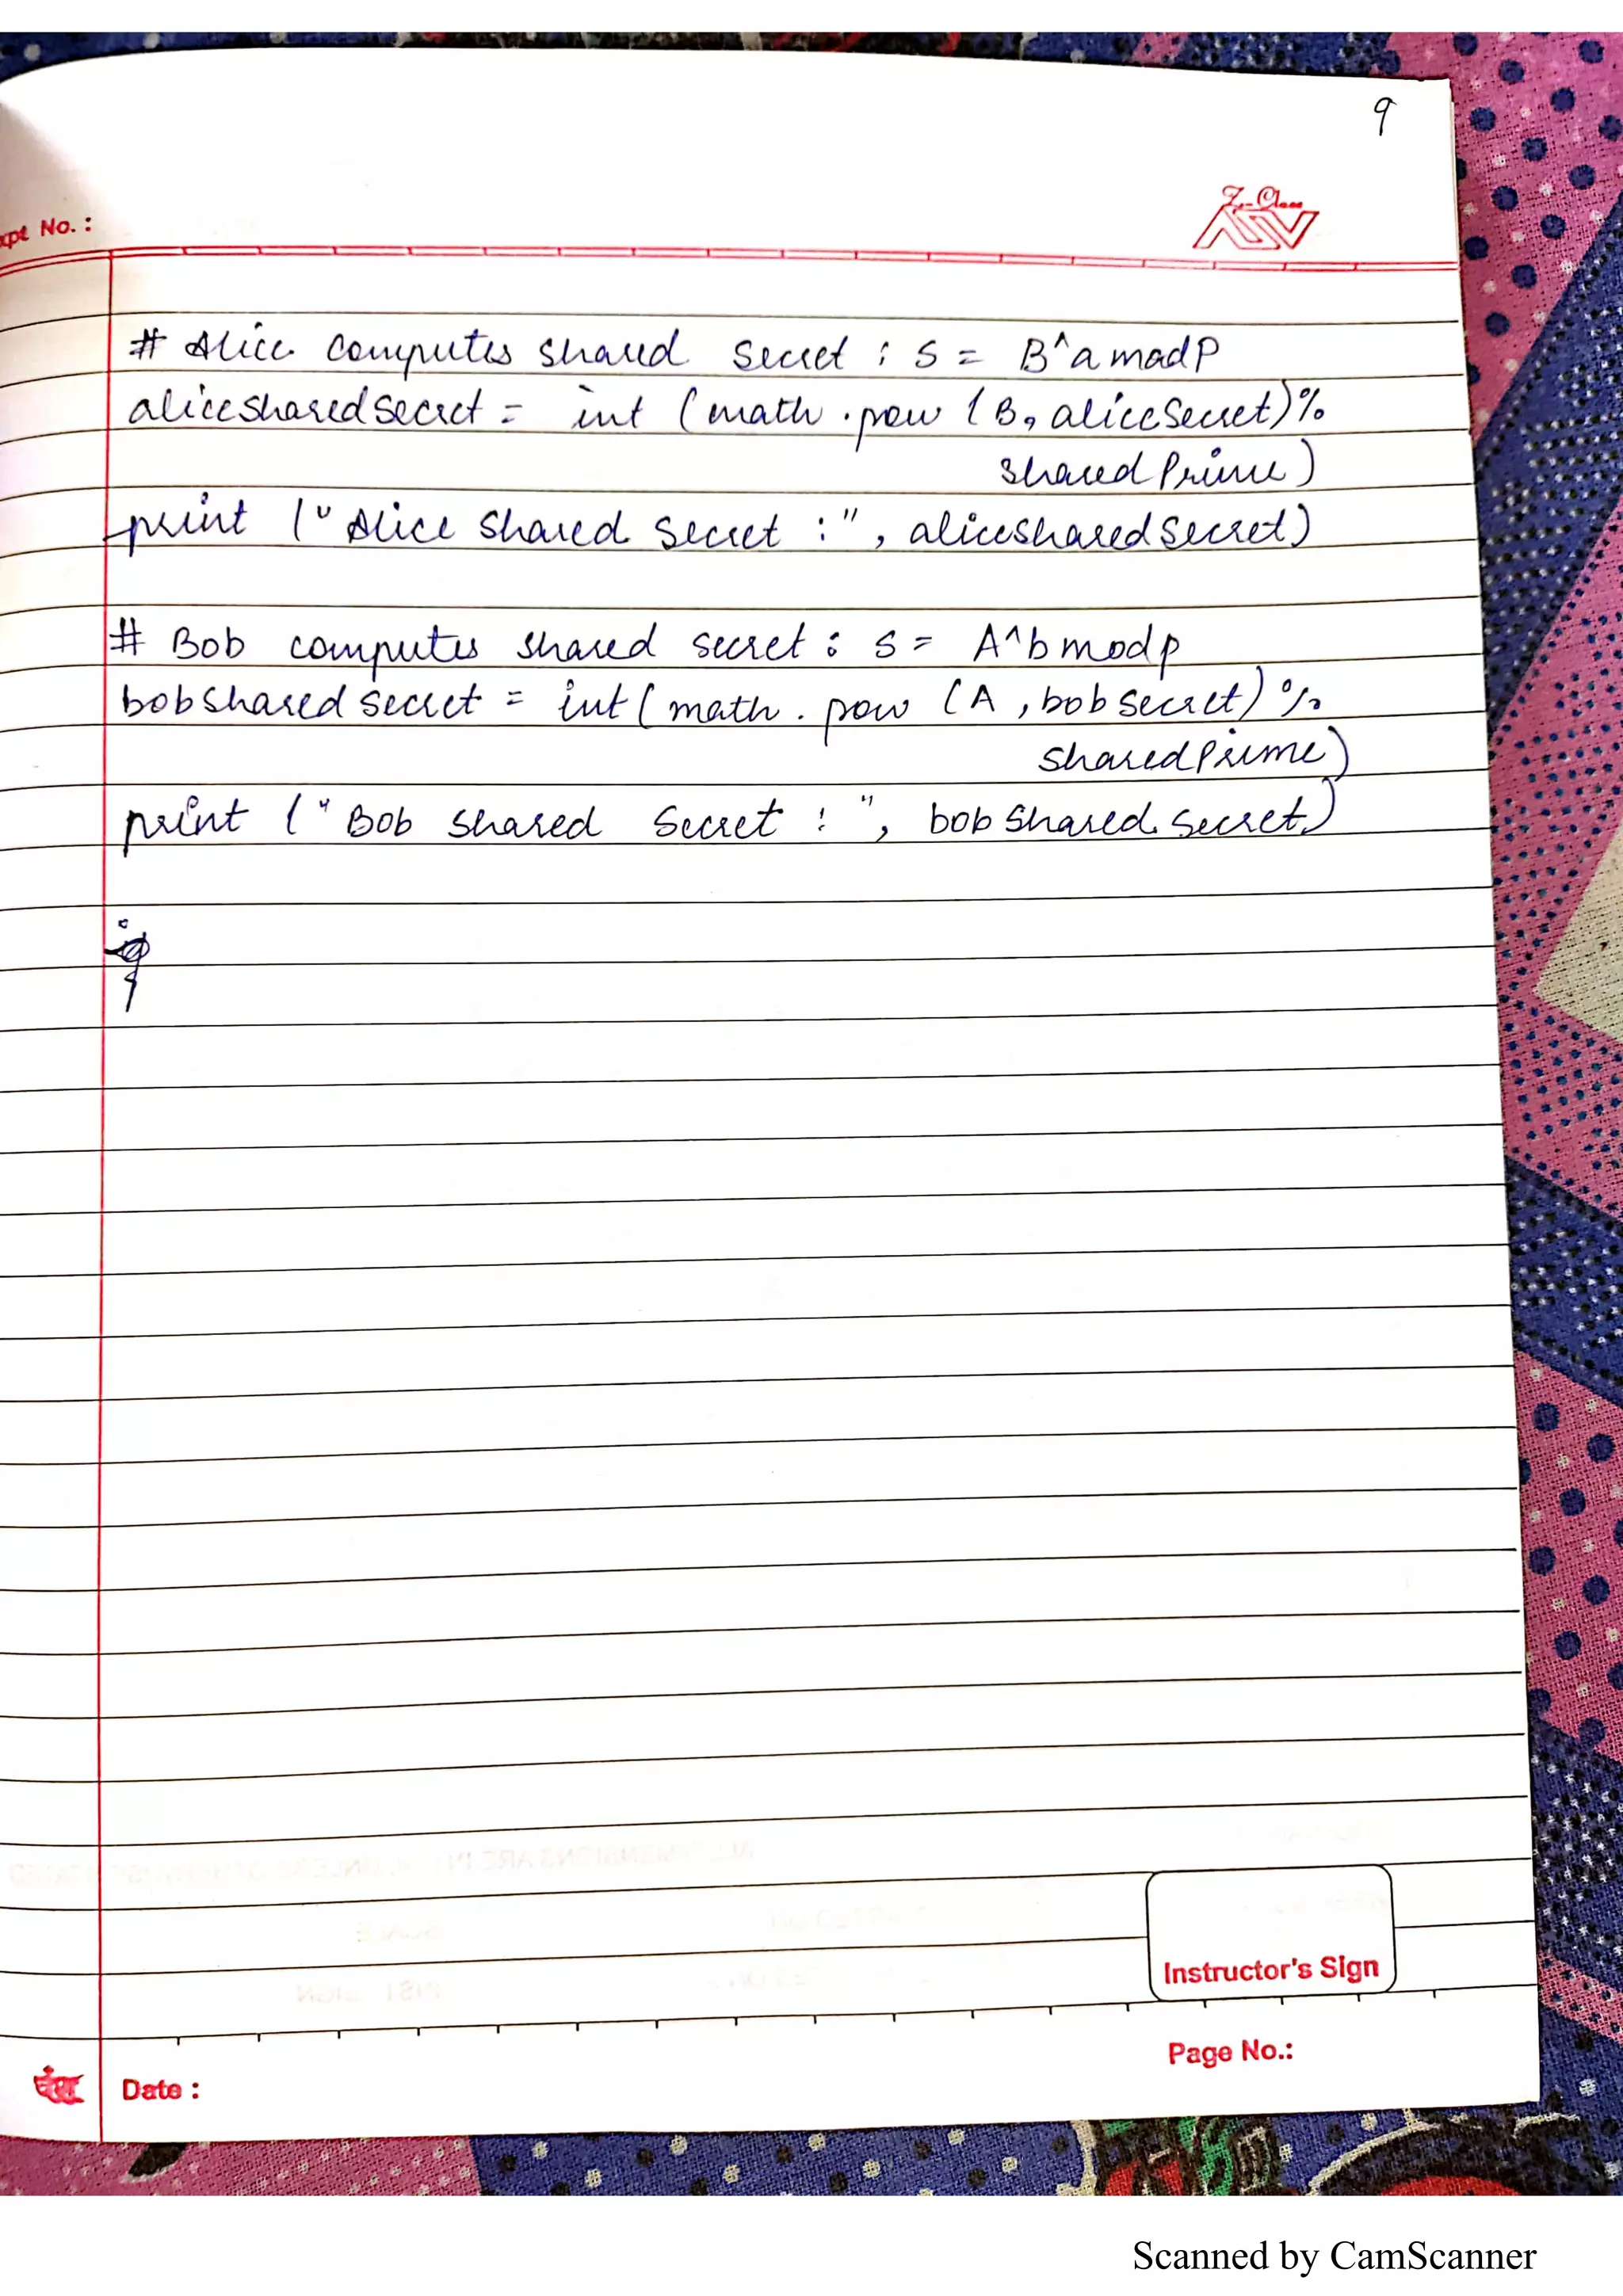 9
Z-Class
xpt No. :
# Alice computes shared secret : s = B^a mod P
alicesharedsecret = int (math . pow (B, aliceSecret)%
shared Prime)
print (" Alice shared secret :" , alicesharedsecret)
# Bob computes shared secret : s = A^b mod p
bobshared secret = int ( math . pow (A , bob secret) %
sharedPrime)
print (" Bob shared Secret : ", bob shared secret)
Instructor's Sign
Page No.:
Date :
Scanned by CamScanner